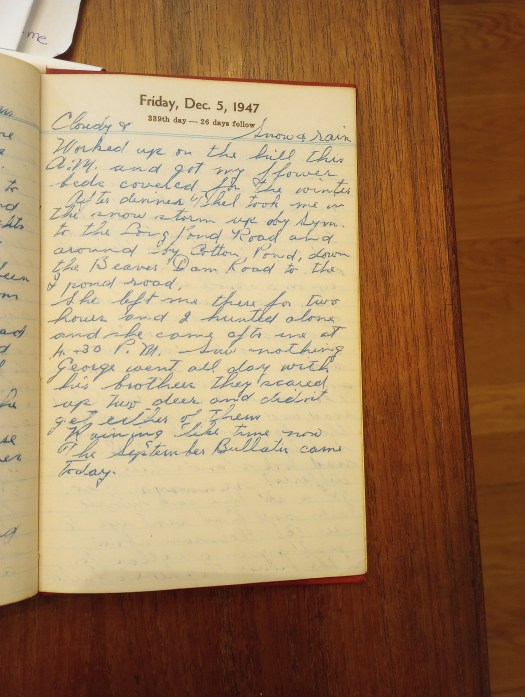 me
Friday, Dec. 5, 1947
339th day — 26 days follow
Cloudy & Snow & rain
Worked up on the hill this
A.M. and got my flower
beds covered for the winter
After dinner Ethel took me in
the snow storm up by Gym.
to the Long Pond Road and
around by Cotton Pond, down
the Beaver Dam Road to the
pond road.
She left me there for two
hours and I hunted alone
and she came after me at
4-30 P.M. Saw nothing
George went all day with
his brother they scared
up two deer and didn't
get either of them
Raining like time now
The September Bulletin came
today.